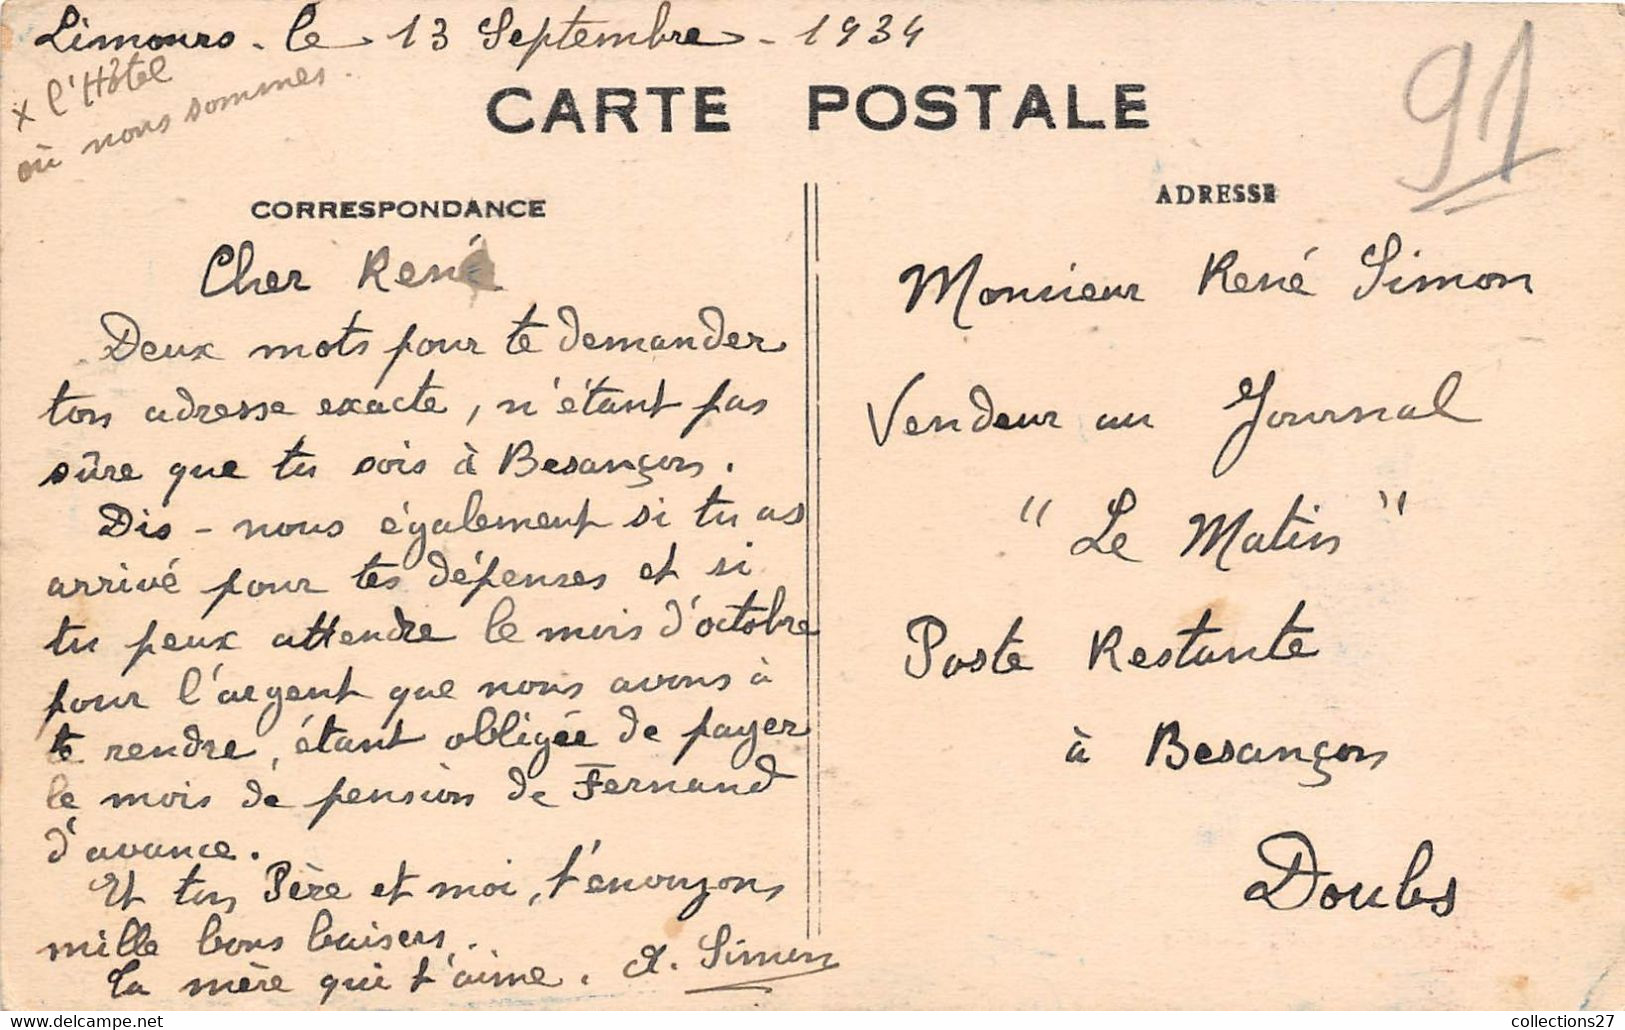 Limours - le 13 Septembre - 1934
x l'Hôtel
où nous sommes.
CARTE POSTALE
91
CORRESPONDANCE
Cher René
Deux mots pour te demander
ton adresse exacte, n'étant pas
sûre que tu sois à Besançon.
Dis-nous également si tu as
arrivé pour tes dépenses et si
tu peux attendre le mois d'octobre
pour l'argent que nous avons à
te rendre, étant obligée de payer
le mois de pension de Fernand
d'avance.
Et ton Père et moi, t'envoyons
mille bons baisers.
Ta mère qui t'aime. A. Simon
ADRESSE
Monsieur René Simon
Vendeur au Journal
"Le Matin"
Poste Restante
à Besançon
Doubs
collections27